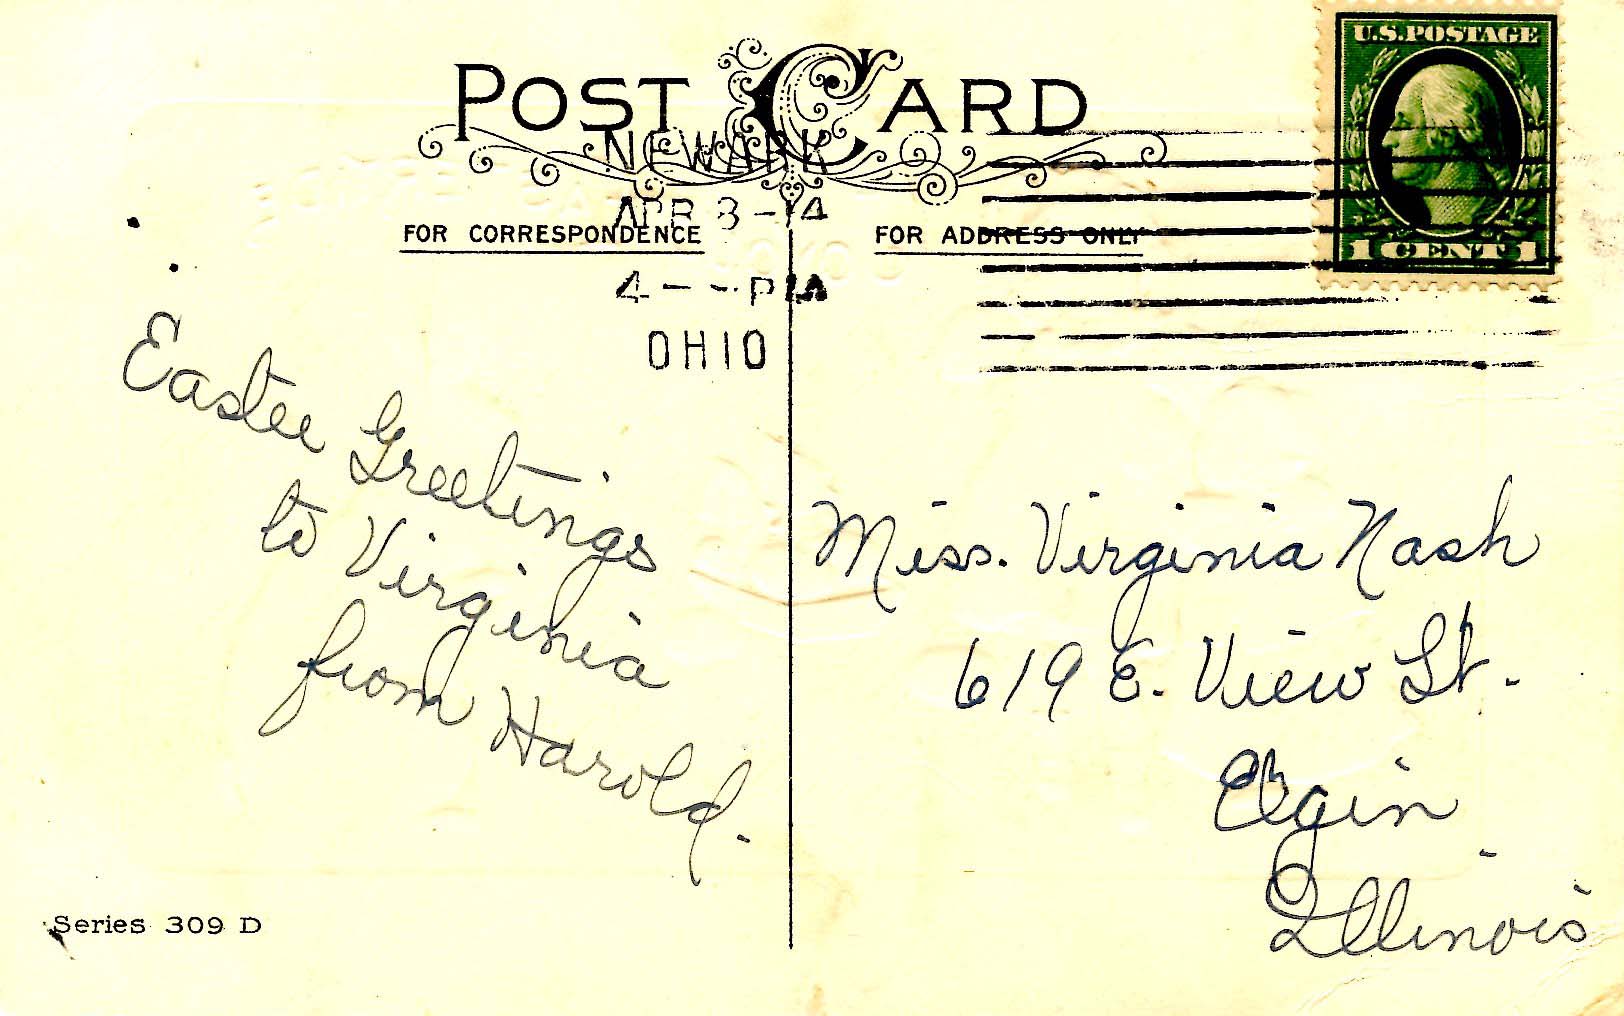 POST CARD
U.S. POSTAGE
1 CENT 1
NEWARK
APR 8 - 14
4 - - PM
OHIO
FOR CORRESPONDENCE
FOR ADDRESS ONLY
Easter Greetings
to Virginia
from Harold.
Miss. Virginia Nash
619 E. View St.
Elgin
Illinois
Series 309 D